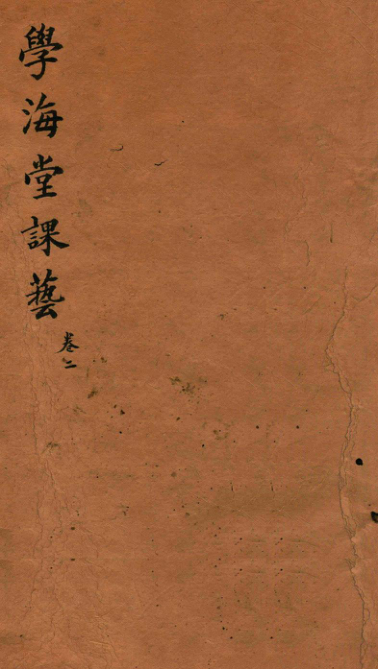 學海堂課藝
卷二